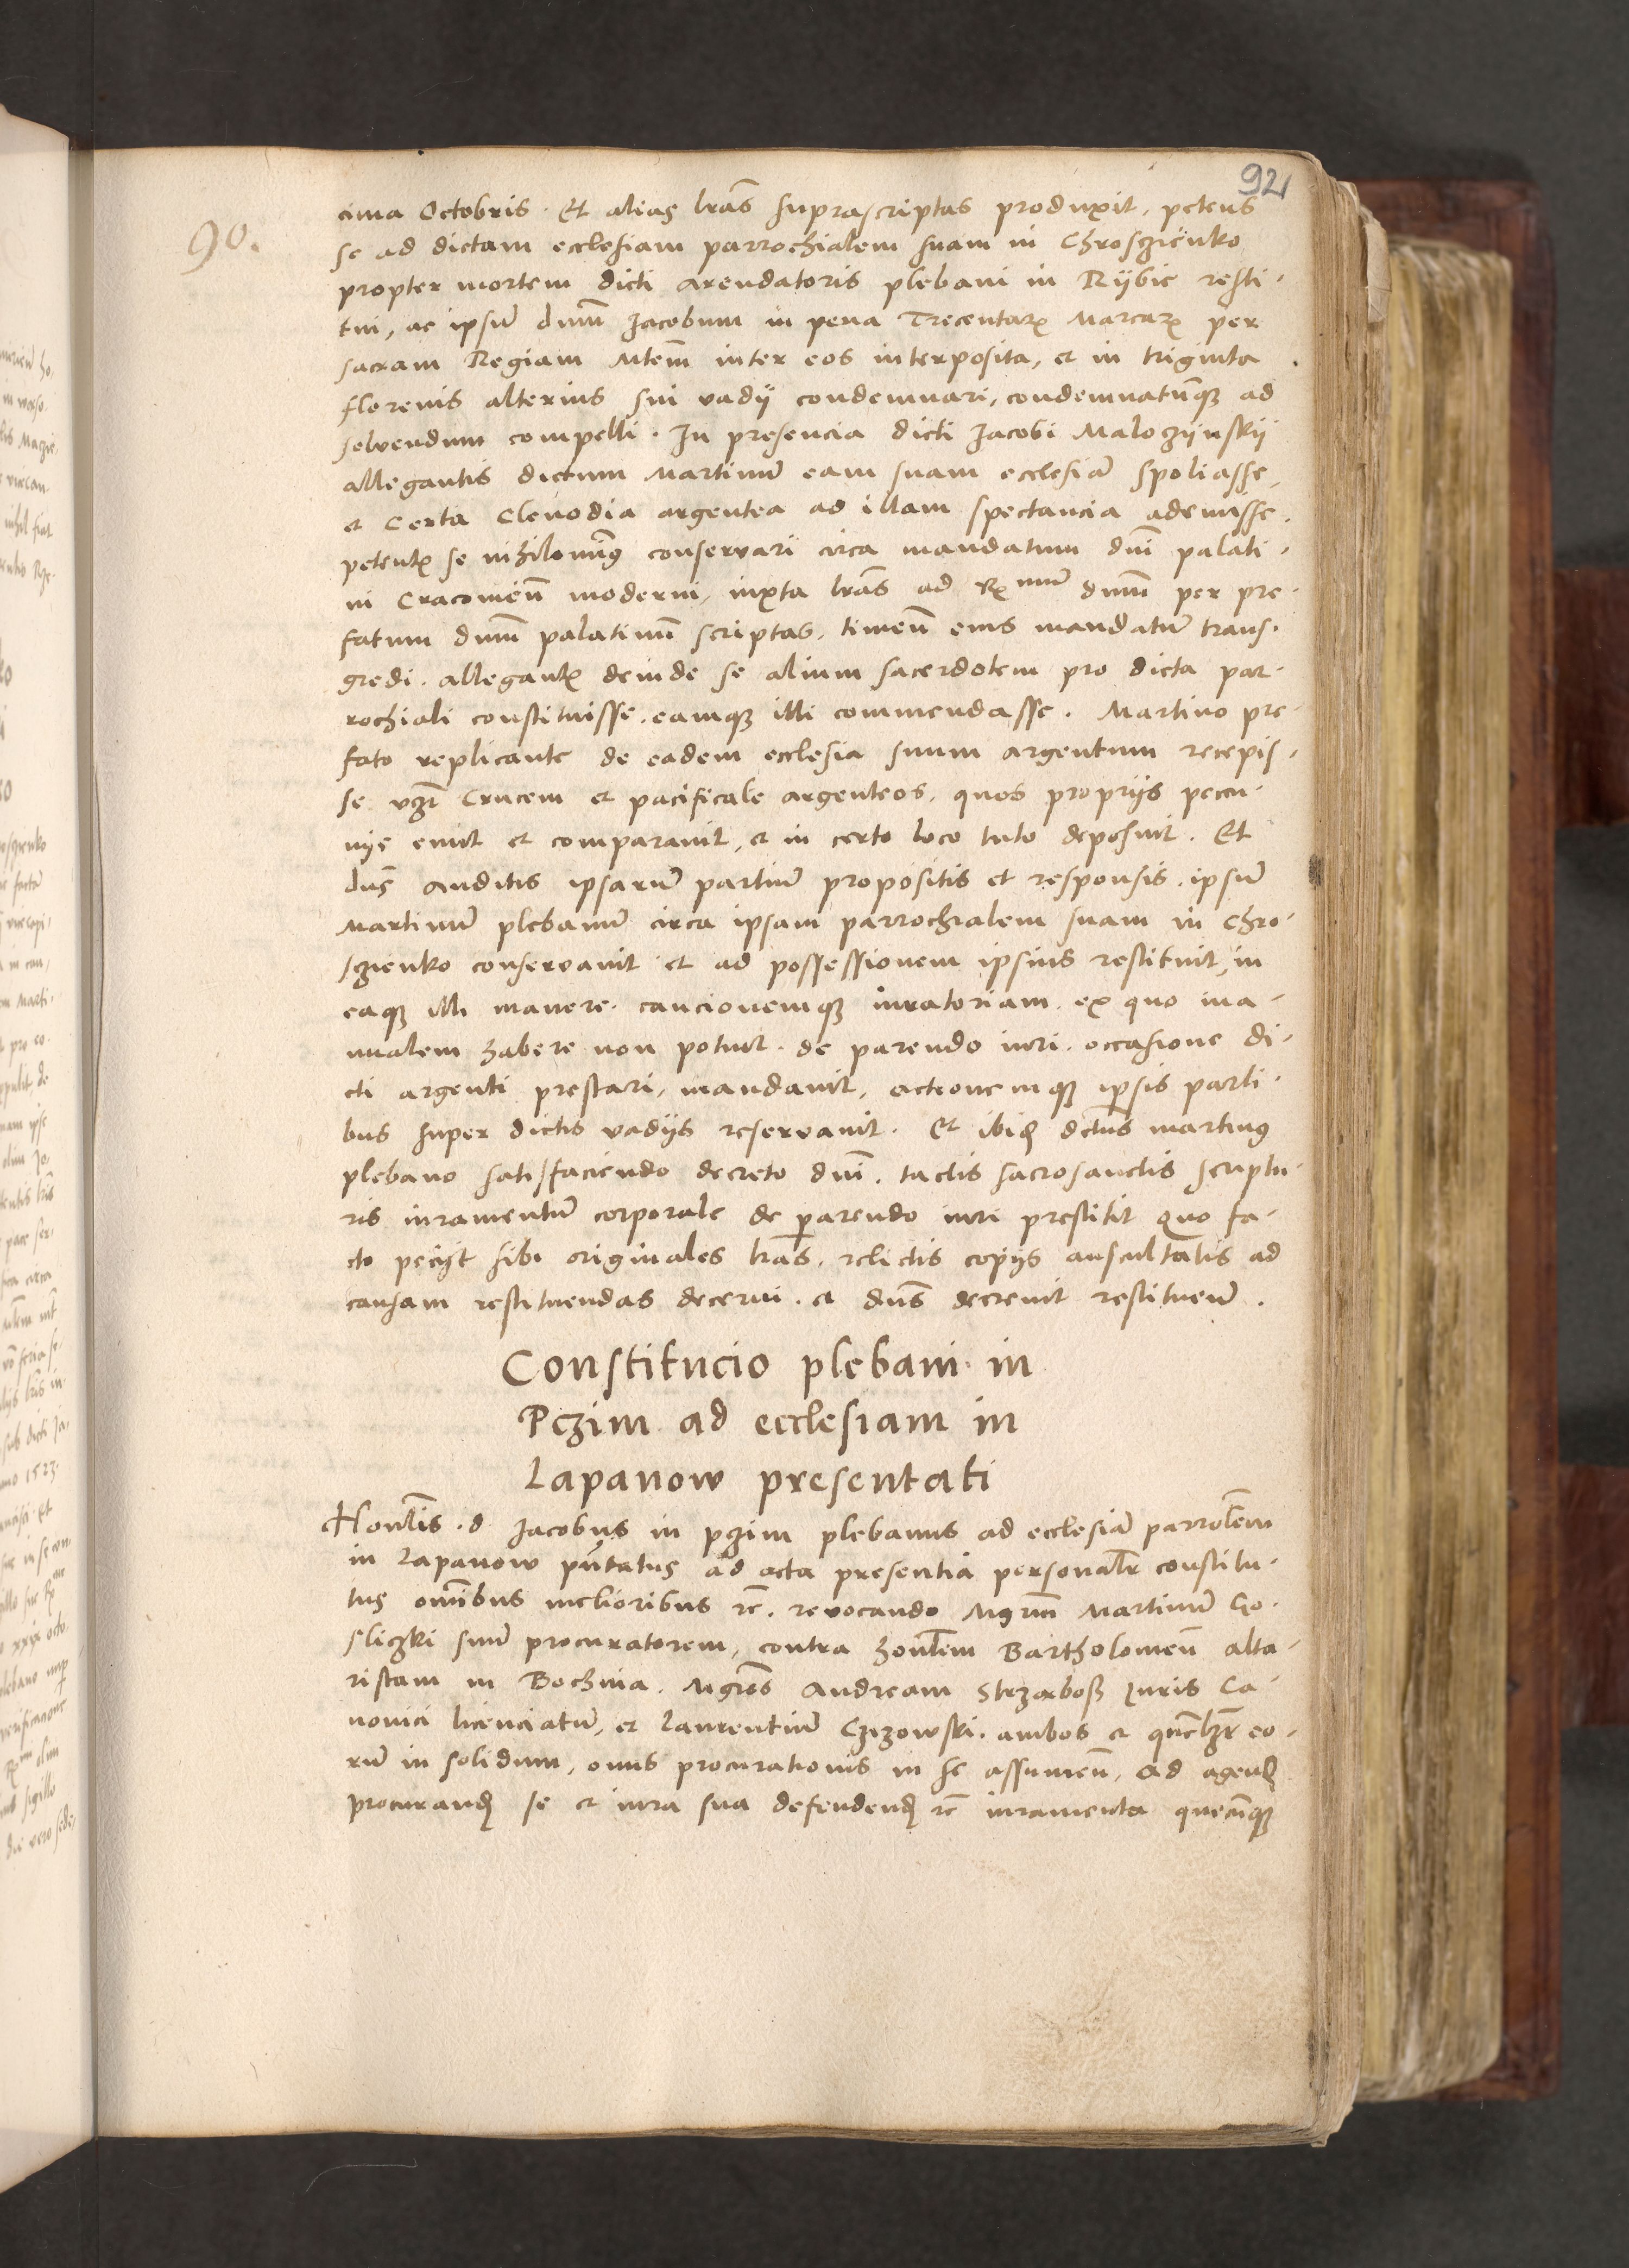 92
90.
cima Octobris. Et alias lrãs suprascriptas produxit, petens
se ad dictam ecclesiam parrochialem suam in Chrosczienko
propter mortem dicti arendatoris plebani in Rÿbie resti-
tui, ac ipsũ dnũm Jacobum in pena Trecentarꝝ Marcarꝝ per
sacram Regiam Mtẽm inter eos interposita, et in triginta
florenis alterius sui vadÿ condemnari, condemnatũqꝫ ad
solvendum compelli. In presencia dicti Jacobi Maloczÿnskÿ
allegantis dictum Martinũ eam suam ecclesiã spoliasse,
et Certa Clenodia argentea ad illam spectancia ademisse.
petentꝭ se nihilominꝰ conservari circa mandatum dnĩ palati-
ni Cracovieñ moderni, iuxta lrãs ad Rmũm dnũm per pre-
fatum dnũm palatinũ scriptas, timeñ eius mandatũ trans-
gredi. allegantꝭ deinde se alium sacerdotem pro dicta par-
rochiali constituisse. eamqꝫ illi commendasse. Martino pre-
fato replicante de eadem ecclesia suum argentum recepis-
se vꝫ Crucem et pacificale argenteos, quos propriis pecu-
nÿs emit et comparavit, et in certo loco tuto deposuit. Et
dnũs auditis ipsarũ partiũ propositis et responsis. ipsũ
Martinũ plebanũ circa ipsam parrochialem suam in Chro-
sczienko conservavit et ad possessionem ipsius restituit, in
eaqꝫ illi manere. caucionemqꝫ iuratoriam, ex quo ma-
nualem habere non potuit. de parendo iuri. occasione di-
cti argenti prestari, mandavit, actionemqꝫ ipsis parti-
bus super dictis vadÿs reservavit. Et ibid dictus martinꝰ
plebano satisfaciendo decreto dnĩ. tactis sacrosanctis scriptu-
ris iuramentũ corporale de parendo iuri prestitit Quo fa-
cto peciÿt sibi originales lrãs, relictis copÿs auscultatis ad
causam restituendas decerni. et dnũs decrevit restitueñ.
Constitucio plebani in
Pczim ad ecclesiam in
Lapanow presentati
Honlĩs. d Jacobus in pczim plebanus ad ecclesiã parrolẽm
in Lapanow pñtatus ad acta presentia personalr constitu-
tus omĩbus melioribus rc̃. revocando Mgrũm Martinũ Go-
sliczki suũ procuratorem, contra honlẽm Bartholomeũ alta-
ristam in Bochnia. Mgrõs Andream Strzaboß Juris Ca-
nonici licenciatũ, et Laurentiũ Czizowski. ambos et quẽlꝫ eo-
rũ in solidum, onus procurationis in se assumeñ. ad agend
procurand se et iura sua defendend rc̃ iuramenta quecũqꝫ